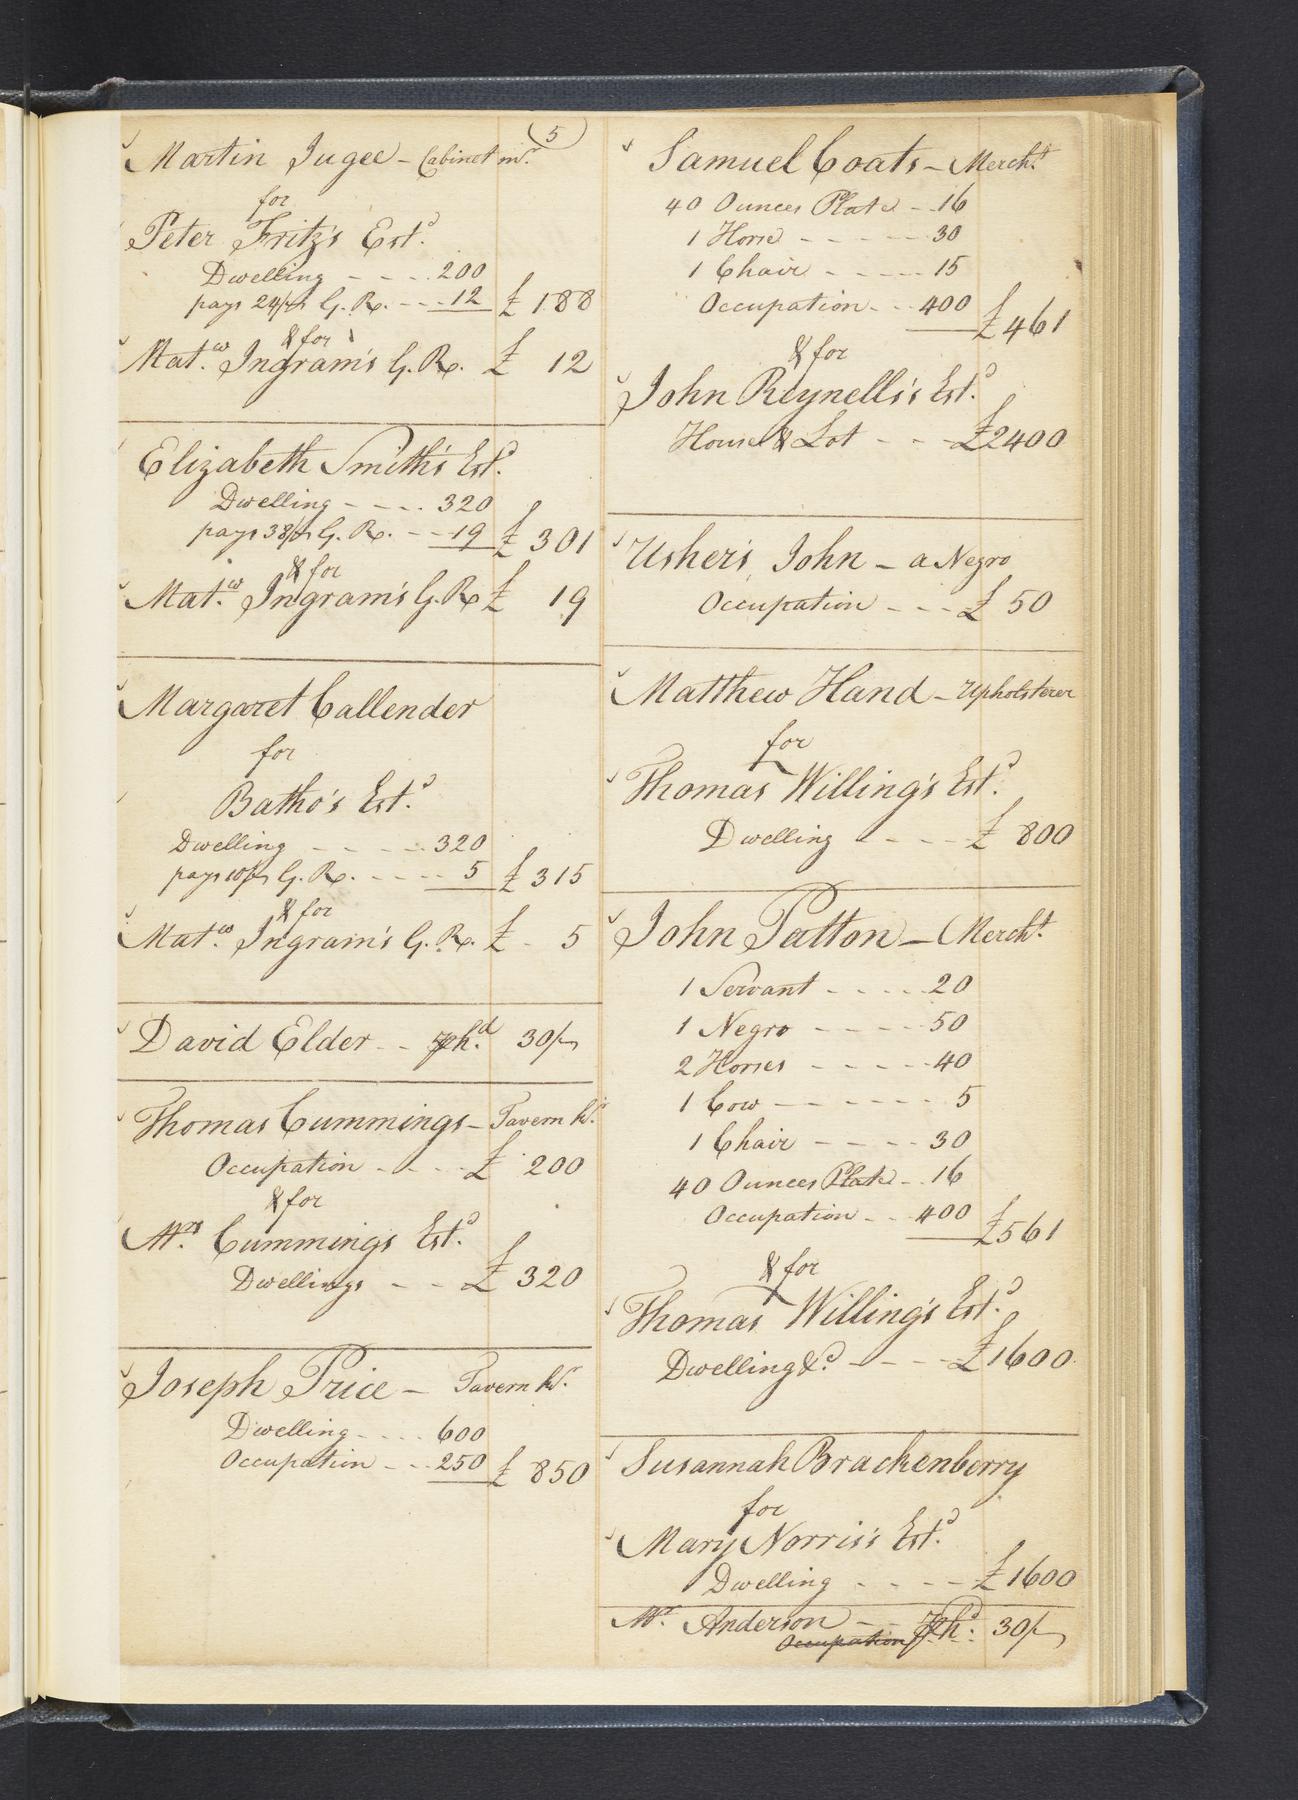 5
Martin Jugee - Cabinet mr.
for
Peter Fritz's Estd.
Dwelling - - - - 200
pays 24/ps G. R. - - - 12 £ 188
& for
Matw. Ingram's G. R. £ 12
Elizabeth Smith's Estd.
Dwelling - - - - 320
pays 38/ps G. R. - - 19 £ 301
& for
Matw. Ingram's G. R. £ 19
Margaret Callender
for
Batho's Estd.
Dwelling - - - - - 320
pays 10/ps G. R. - - - - 5 £ 315
& for
Matw. Ingram's G. R. £ - 5
David Elder - - hd. 30/-
Thomas Cummings - Tavern kr.
Occupation - - - - £ 200
& for
Mrs. Cummings Estd.
Dwellings - - £ 320
Joseph Price - Tavern kr.
Dwelling - - - - 600
Occupation - - - 250 £ 850
Samuel Coats - Mercht.
40 Ounces Plate - 16
1 Horse - - - - - 30
1 Chair - - - - - 15
Occupation - - 400 £ 461
& for
John Reynells's Estd.
House & Lot - - - £ 2400
Usher's, John - a Negro
Occupation - - - £ 50
Matthew Hand - Upholsterer
for
Thomas Willing's Estd.
Dwelling - - - - £ 800
John Patton - Mercht.
1 Servant - - - - 20
1 Negro - - - - - 50
2 Horses - - - - - 40
1 Cow - - - - - - 5
1 Chair - - - - 30
40 Ounces Plate - 16
Occupation - - 400 £ 561
& for
Thomas Willing's Estd.
Dwelling &c. - - - - £ 1600
Susannah Brackenberry
for
Mary Norris's Estd.
Dwelling - - - - £ 1600
Mr. Anderson - - hd. 30/-
Occupation